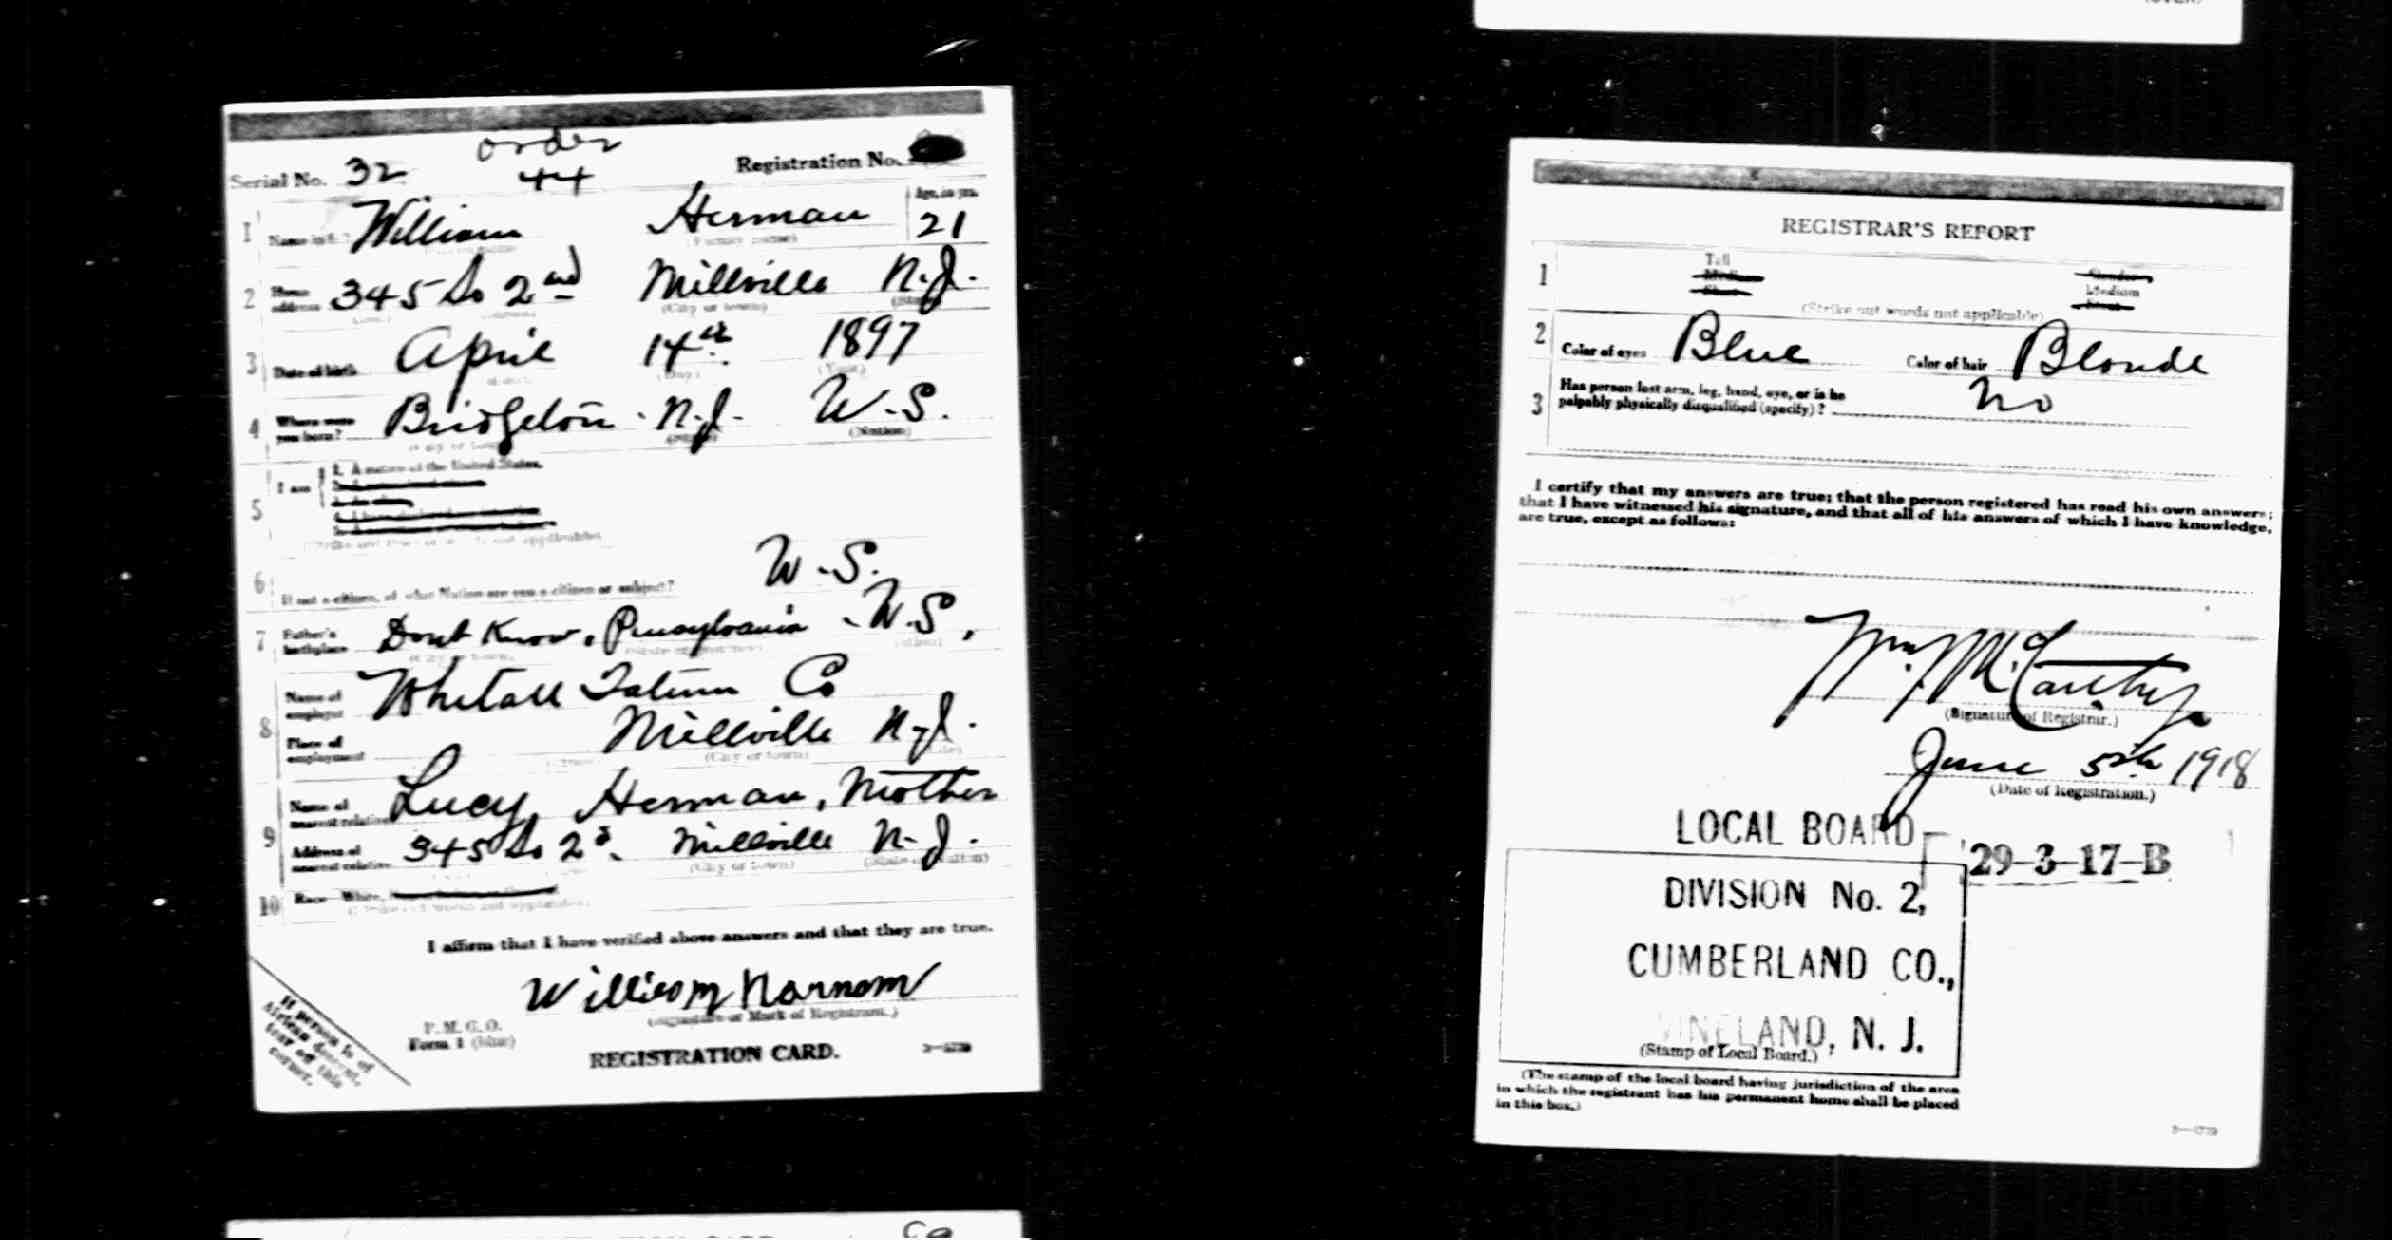 order
Serial No. 32 44 Registration No.
1 Name William Herman Age, in yrs. 21
2 Home address 345 So 2nd Millville N.J.
(City or town)
3 Date of birth April 14th 1897
(Day) (Year)
4 Where were you born? Bridgeton N.J. U.S.
(Nation)
5 I am 1. A native of the United States.
6 If not a citizen, of what Nation are you a citizen or subject? U.S.
7 Father's birthplace Dont Know, Pennsylvania U.S.
8 Name of employer Whitall Tatum Co
Place of employment Millville N.J.
(City or town)
9 Name of nearest relative Lucy Herman, Mother
Address of nearest relative 345 So 2d. Millville N.J.
(City or town) (State or nation)
10 Race—White,
I affirm that I have verified above answers and that they are true.
William Harnom
(Signature or Mark of Registrant.)
P. M. G. O.
Form 1 (blue)
REGISTRATION CARD.
If person is of
African descent,
tear off this
corner.
REGISTRAR'S REPORT
1 Tall
Medium
(Strike out words not applicable)
2 Color of eyes Blue Color of hair Blonde
3 Has person lost arm, leg, hand, eye, or is he
palpably physically disqualified (specify)? No
I certify that my answers are true; that the person registered has read his own answers;
that I have witnessed his signature, and that all of his answers of which I have knowledge,
are true, except as follows:
Wm. J. McCarthy
(Signature of Registrar.)
June 5th 1918
(Date of Registration.)
LOCAL BOARD
29-3-17-B
DIVISION No. 2,
CUMBERLAND CO.,
VINELAND, N. J.
(Stamp of Local Board.)
(The stamp of the local board having jurisdiction of the area
in which the registrant has his permanent home shall be placed
in this box.)